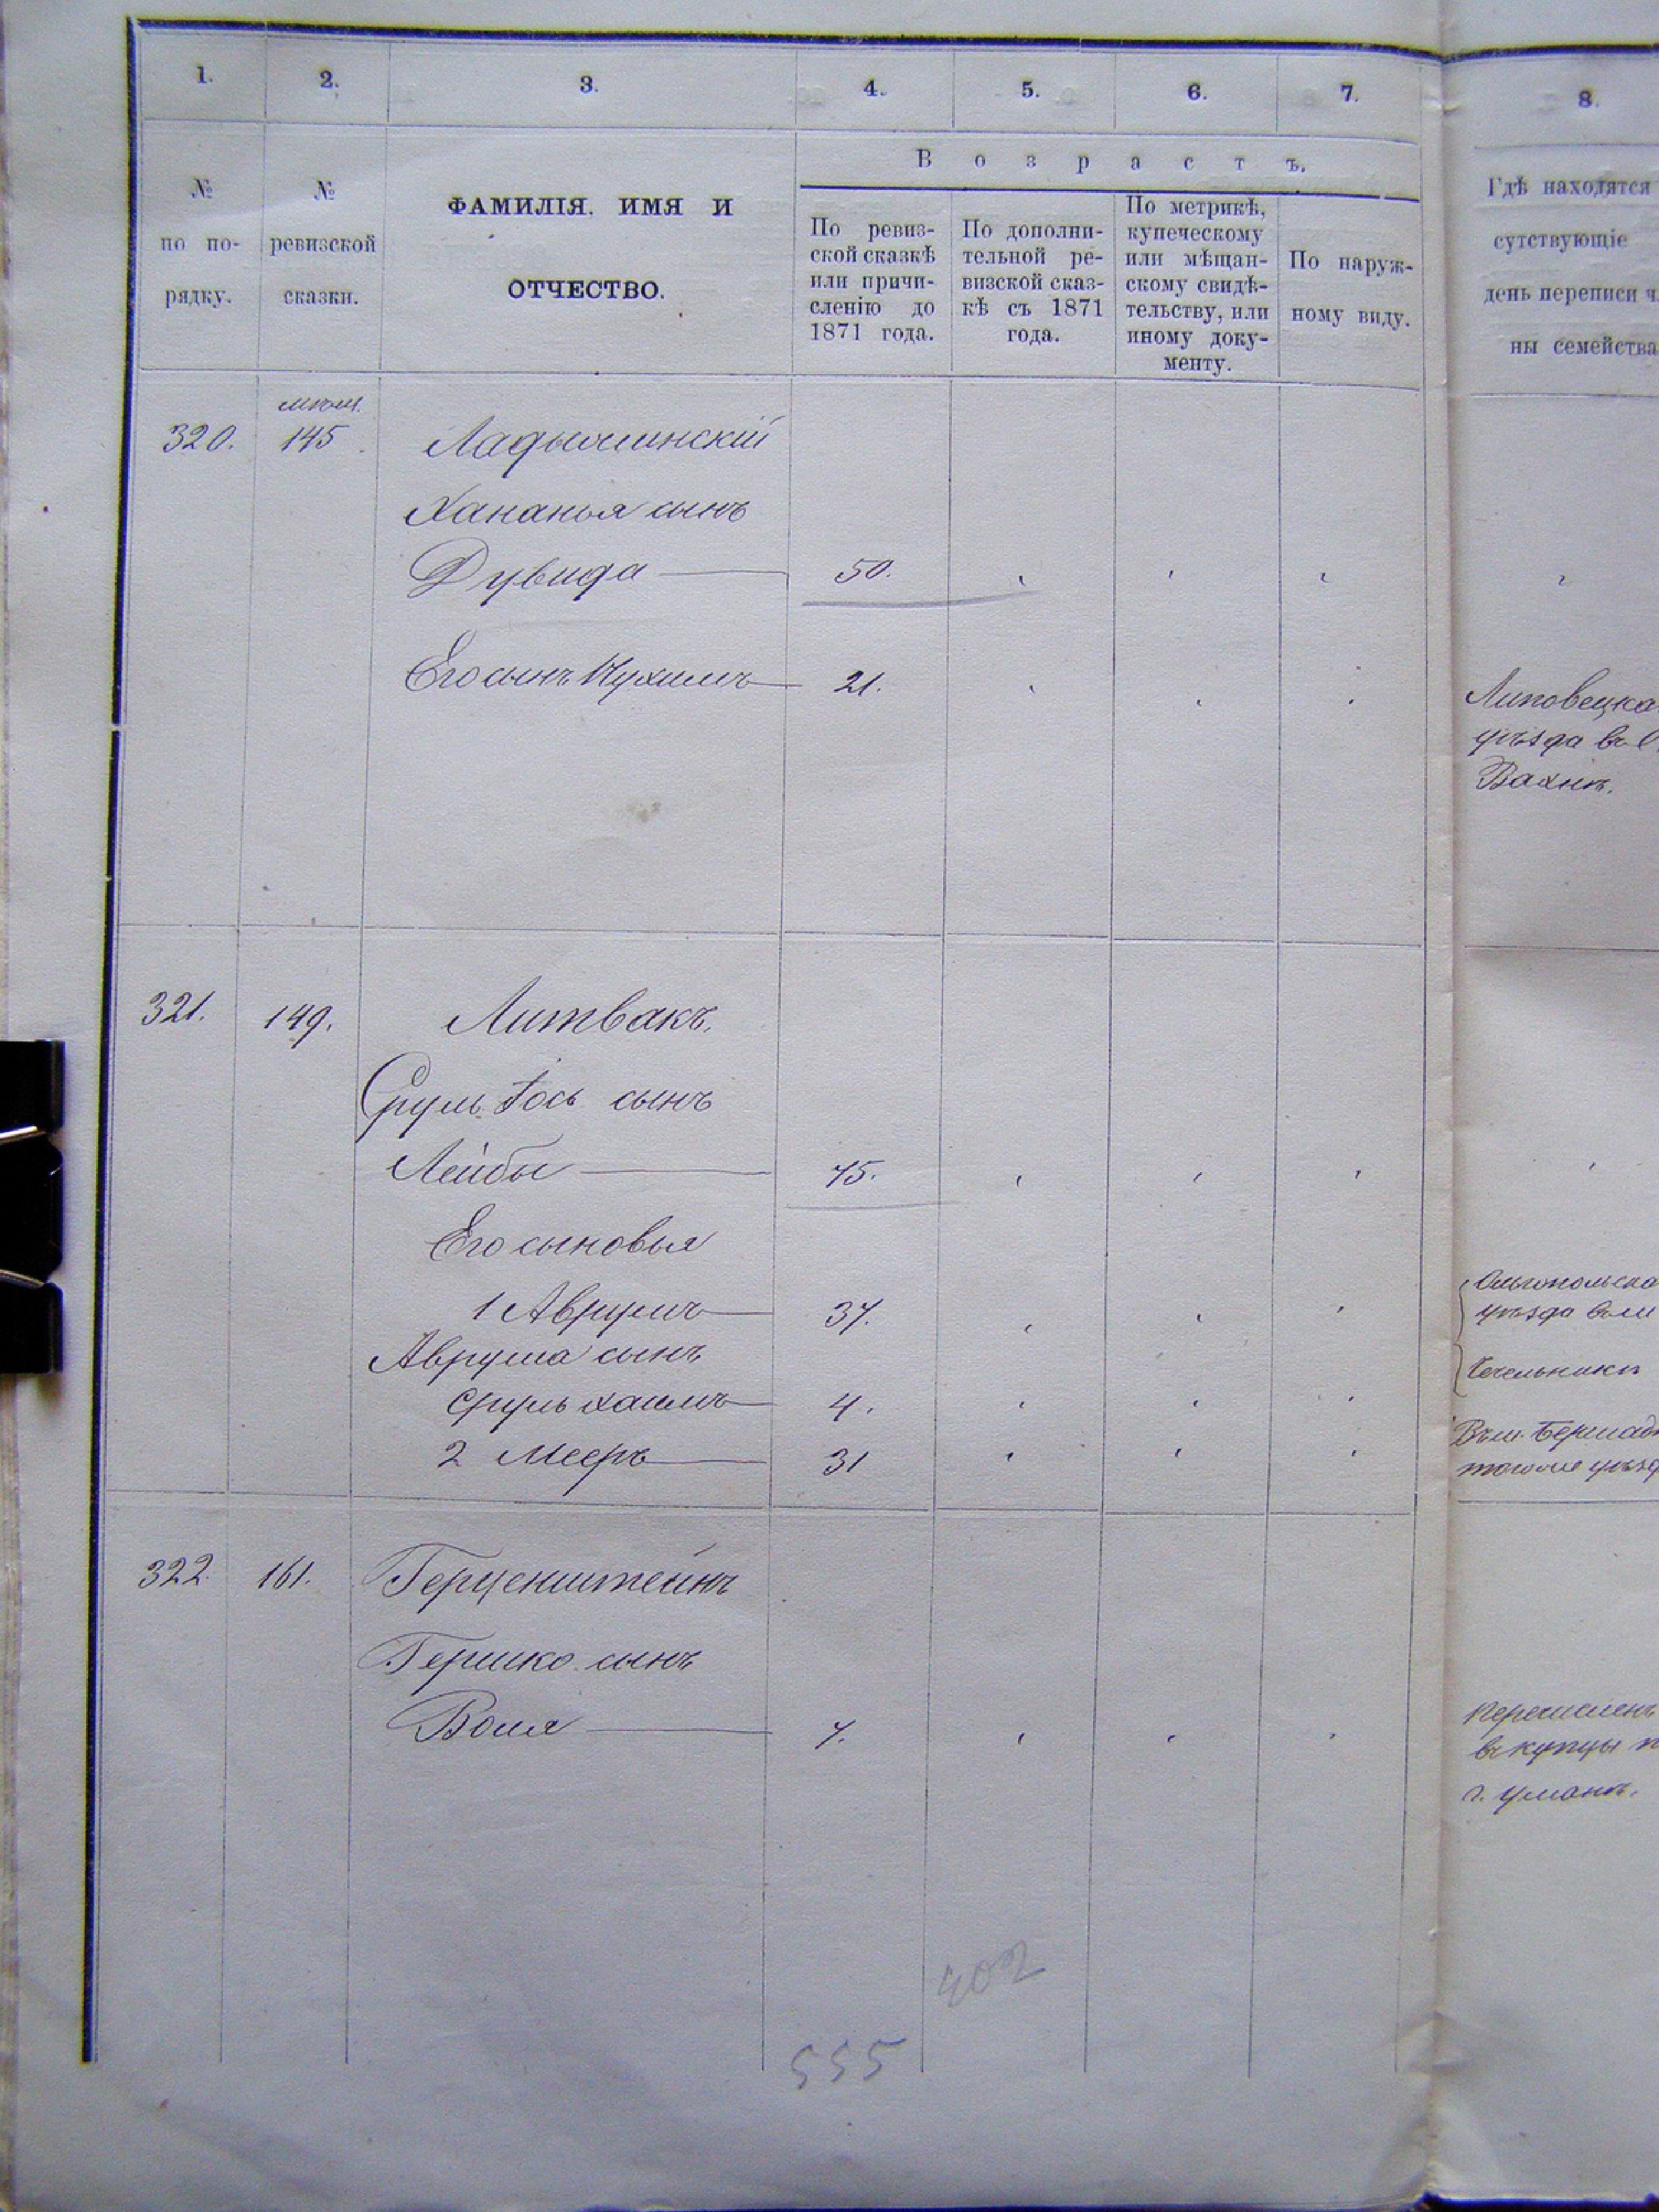 1.
2.
3.
4.
5.
6.
7.
8.
№
по по-
рядку.
№
ревизской
сказки.
ФАМИЛІЯ, ИМЯ И
ОТЧЕСТВО.
Возрастъ.
По ревиз-
ской сказкѣ
или причи-
сленію до
1871 года.
По дополни-
тельной ре-
визской сказ-
кѣ съ 1871
года.
По метрикѣ,
купеческому
или мѣщан-
скому свидѣ-
тельству, или
иному доку-
менту.
По наруж-
ному виду.
Гдѣ находятся
сутствующіе
день переписи ч
ны семейства
мѣщ.
320. 145. Ладыжинскій
Хананья сынъ
Дувида — 50.
Его сынъ Нухимъ — 21.
Липовецка
уѣзда въ С.
Вахнѣ.
321. 149. Литвакъ.
Сруль Іось сынъ
Лейбы — 75.
Его сыновья
1 Аврумъ — 37.
Аврума сынъ
Сруль Хаимъ — 4.
2 Мееръ — 31
Ольгопольска
уѣзда въ м
Чечельникѣ
Въ м. Бершадѣ
того же уѣзд
322. 161. Герценштейнъ
Гершко сынъ
Вол — 7.
Перечисленъ
въ купцы п
г. Умань.
402
555